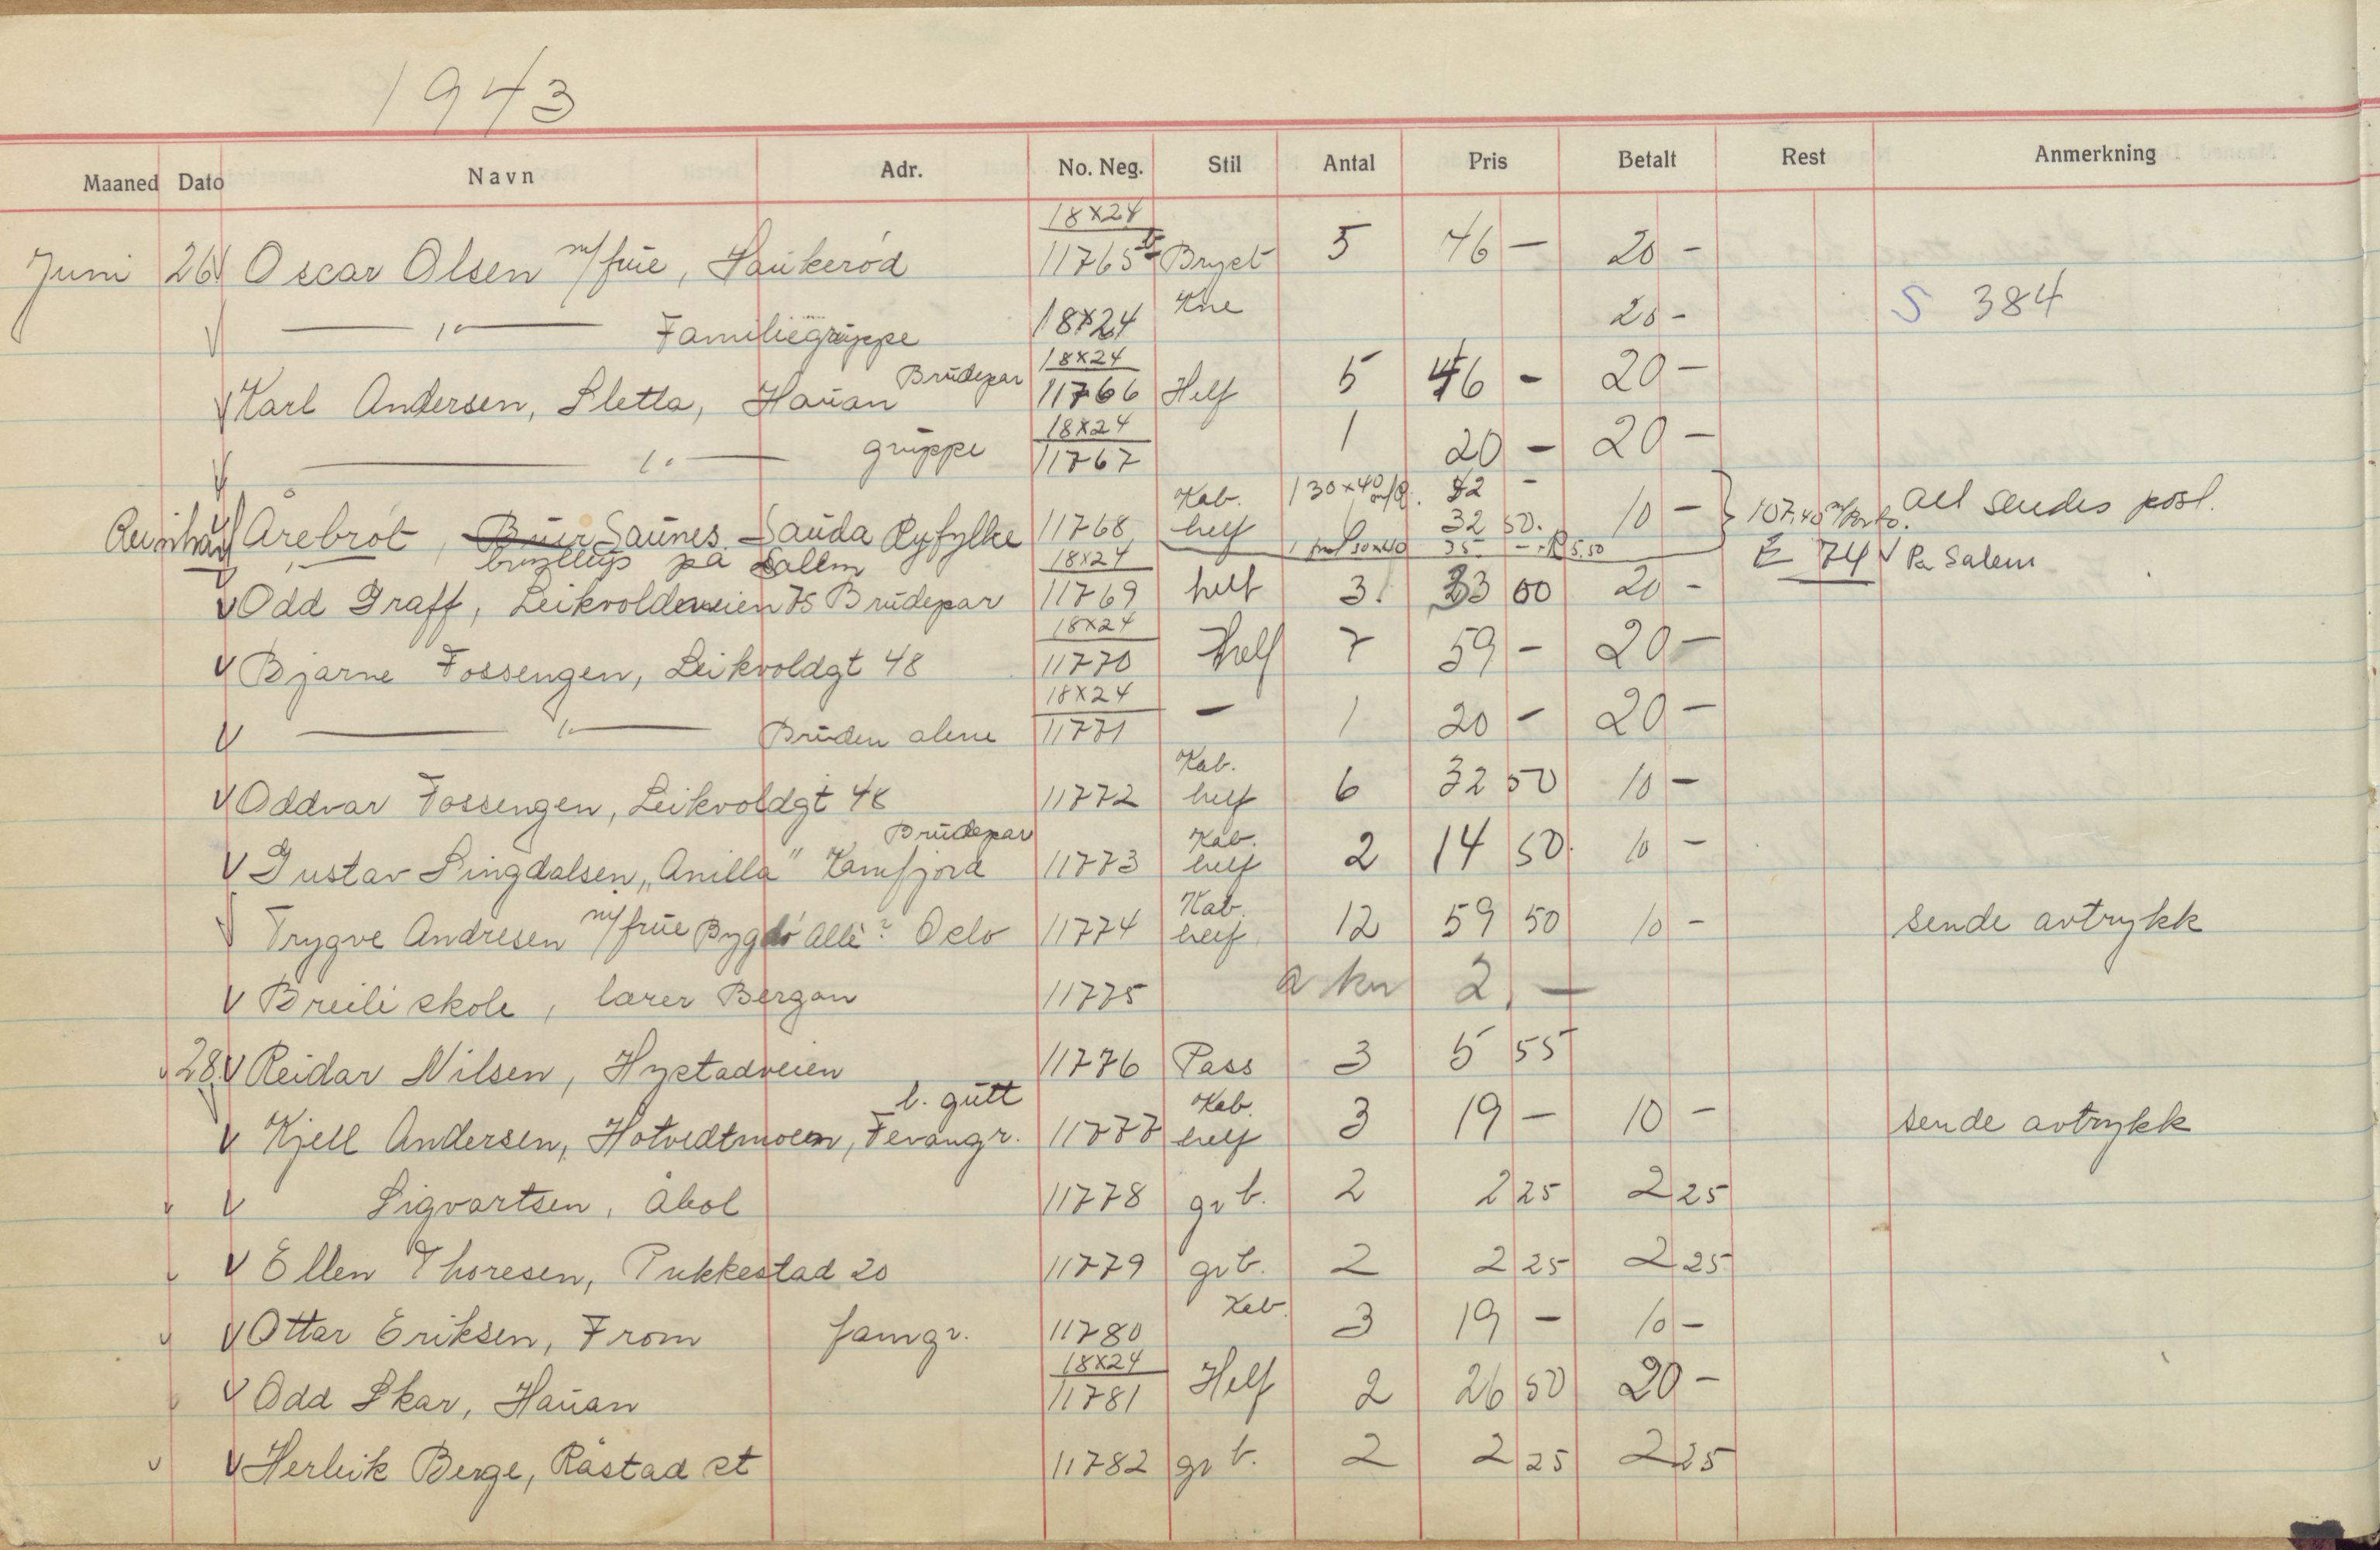 1943
Maaned Dato Navn Adr. No. Neg. Stil Antal Pris Betalt Rest Anmerkning
18x24
Juni 26 Oscar Olsen m/frue, Haukerød 11765 Bryst 5 46 - 20 -
Familiegruppe 18x24 Kne 20 - S 384
18x24
Karl Andersen, Sletta, Hauan Brudepar 11766 Helf 5 46 - 20 -
18x24
gruppe 11767 1 20 - 20 -
Kab. 1 30x40 - 
Årebrot, Saunes Sauda Ryfylke 11768 helf 32 50. 10 - 107,40 m/Porto. alt sendes post.
bryllup på Salem 18x24 30x40 35 - 5.50 E 74 V På Salem
Odd Graff, Leikvoldveien 75 Brudepar 11769 helf 3 33 00 20 -
18x24
Bjarne Fossengen, Leikvoldgt 48 11770 Helf 7 59 - 20 -
18x24
Bruden alene 11771 - 1 20 - 20 -
Kab.
Oddvar Fossengen, Leikvoldgt 48 11772 helf 6 32 50 10 -
Brudepar Kab.
Gustav Lingdalsen, „Anilla" Kamfjord 11773 helf 2 14 50. 10 -
Kab.
Trygve Andresen m/frue Bygdö Allè ? Oslo 11774 helf 12 59 50 10 - sende avtrykk
Breili skole, lærer Bergan 11775 a kr 2. -
28. Reidar Nilsen, Hystadveien 11776 Pass 3 5 55
l. gutt Kab.
Kjell Andersen, Hotvedtmoen, Fevangr. 11777 helf 3 19 - 10 - sende avtrykk
Sigvartsen, Åbol 11778 gr b. 2 2 25 2 25
Ellen Thoresen, Pukkestad 20 11779 gr b. 2 2 25 2 25
Ottar Eriksen, From famgr. 11780 Kab. 3 19 - 10 -
18x24
Odd Skar, Hauan 11781 Helf 2 26 50 20 -
Herleik Berge, Råstad st 11782 gr b. 2 2 25 2 25